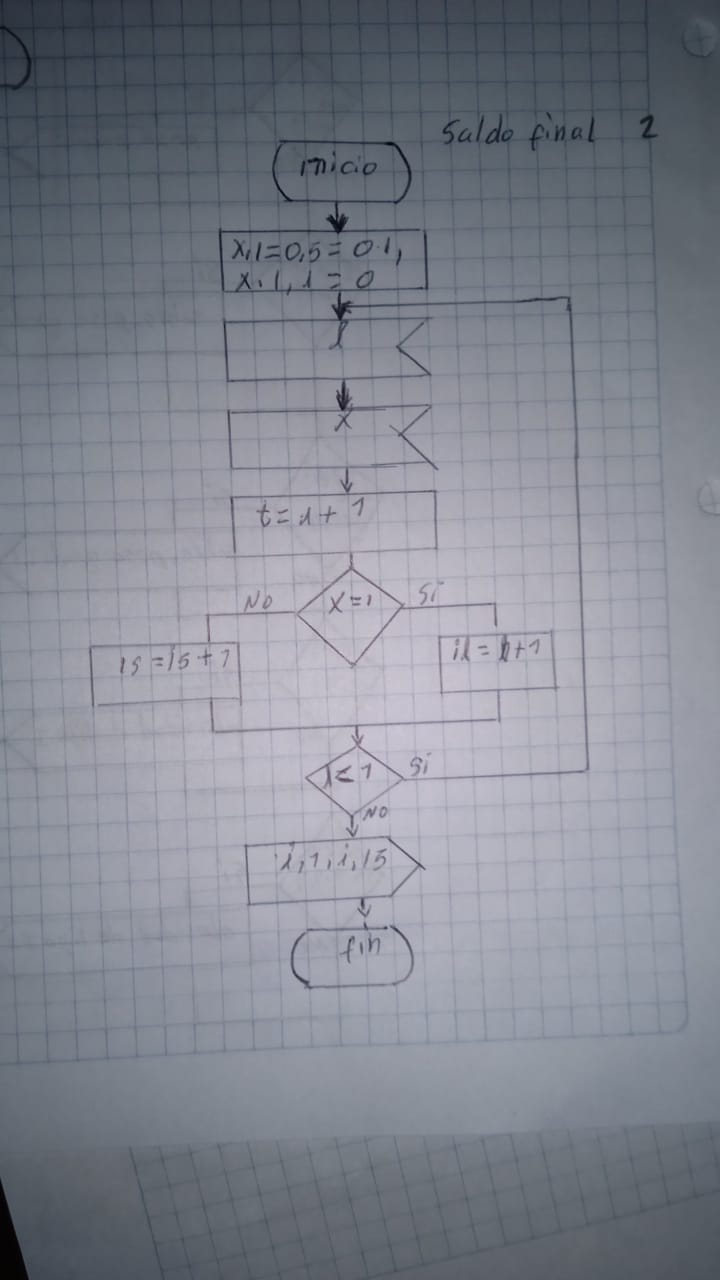 Saldo final 2
inicio
x,1=0,5=0.1,
x.1,1=0
l
x
t=1+1
NO
x=1
Si
is=is+1
i<1
Si
NO
i,1,i,15
fin